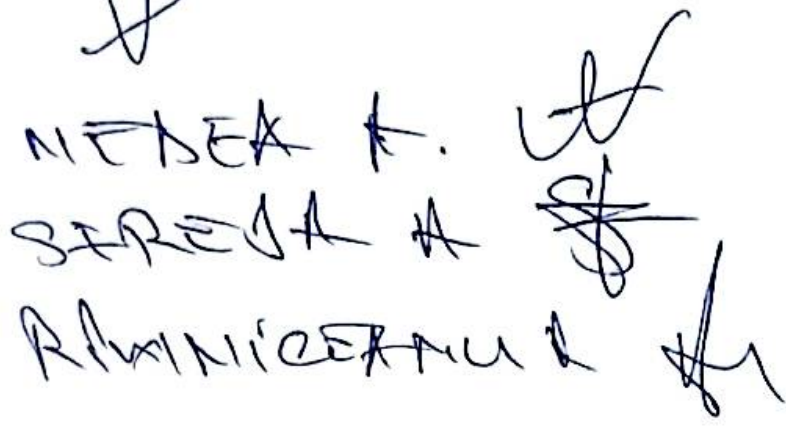 NEDEA A.
SIREJA A
RÂMNICEANU A